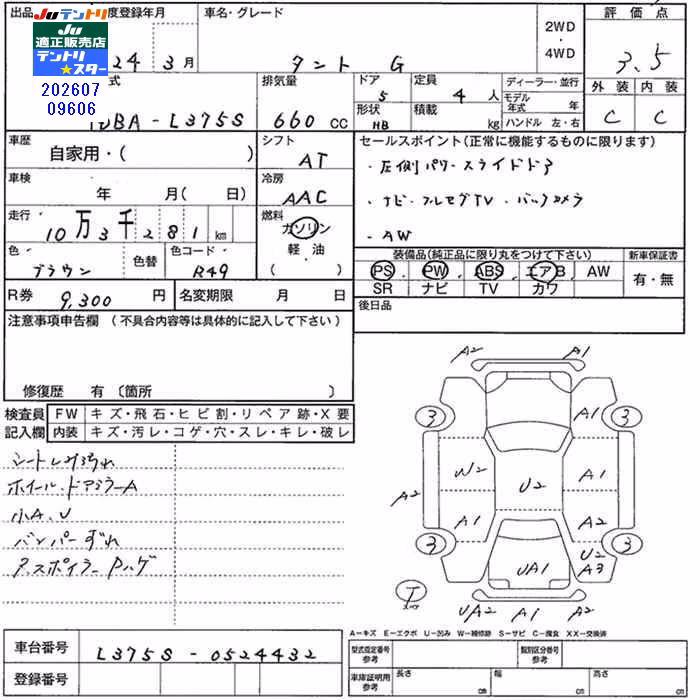 出品
JU テントリ
適正販売店
テントリ
★スター
202607
09606
度登録年月
24 年 3 月
車名・グレード
タント G
2WD
・
4WD
評価点
3.5
外装 内装
C C
式
DBA-L375S
排気量
660 CC
ドア
5
形状
HB
定員
4 人
積載
kg
ディーラー・並行
モデル年式 年
ハンドル 左・右
車歴
自家用・( )
シフト
AT
セールスポイント(正常に機能するものに限ります)
・左側パワースライドドア
・ナビ・フルセグTV・バックカメラ
・AW
車検
年 月( 日)
冷房
AAC
走行
10万3千281km
燃料
ガソリン
軽・油
( )
色
ブラウン
色替
色コード
R49
装備品(純正品に限り丸をつけて下さい)
PS PW ABS エアB AW
SR ナビ TV カワ
新車保証書
有・無
R券 9,300 円
名変期限 月 日
後日品
注意事項申告欄(不具合内容等は具体的に記入して下さい)
修復歴 有〔箇所 〕
検査員
記入欄
FW キズ・飛石・ヒビ割・リペア跡・X要
内装 キズ・汚レ・コゲ・穴・スレ・キレ・破レ
シートしみ汚れ
ホイール・ドアミラーA
小A、U
バンパーずれ
スポイラーPハゲ
A2 A1
3 A1 3
W2 A1
A2 U2
A1 A2
3 U2 3
A3
UA1
T
UA2 A1 A2
A-キズ E-エクボ U-凹み W-補修跡 S-サビ C-腐食 XX-交換済
車台番号 L375S-0524432
登録番号
型式指定番号
参考
類別区分番号
参考
車庫証明用
参考
長さ cm
幅 cm
高さ cm